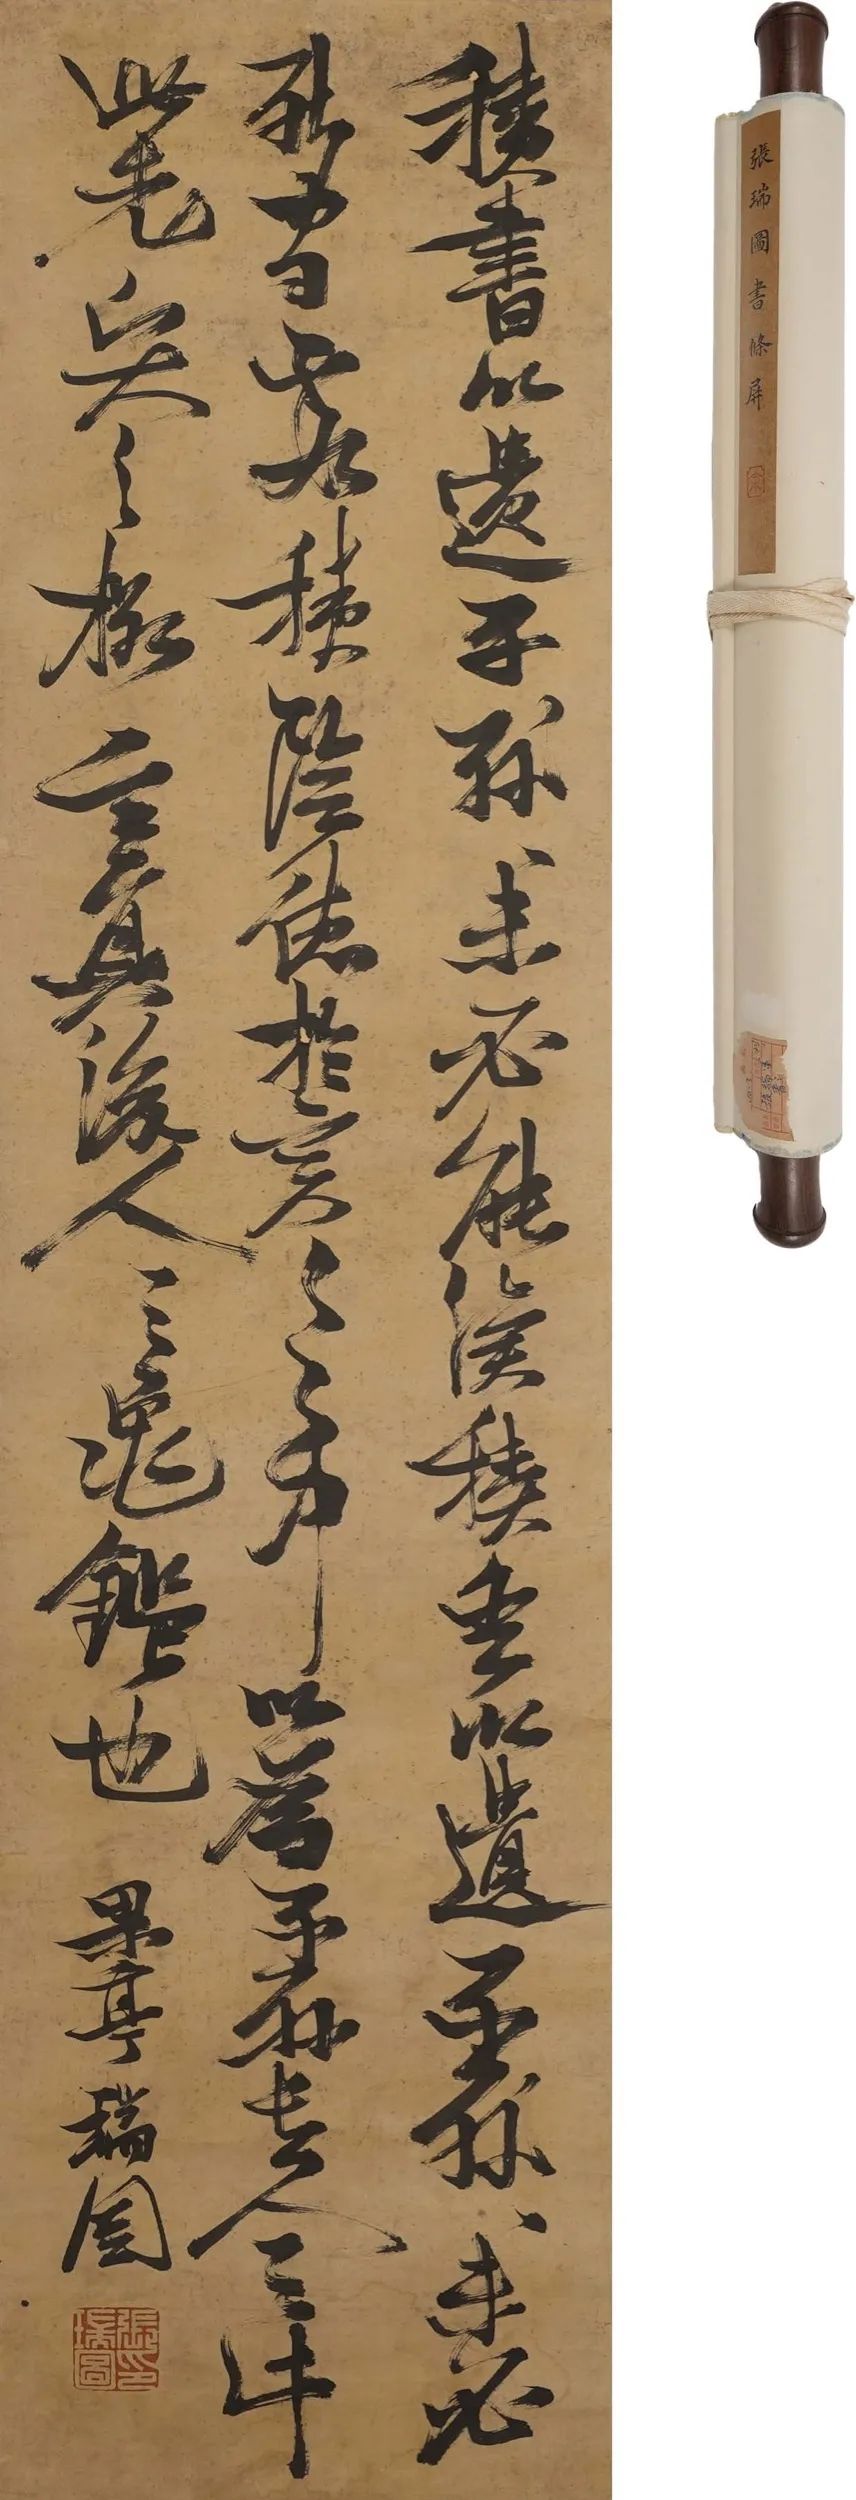 積書以遺子孫未必能讀積金以遺子孫未必
能守不若積陰德於冥冥之中以為子孫長久之計
此先賢之格言真後人之龜鑑也
果亭瑞圖
張瑞圖印
張瑞圖書條屏